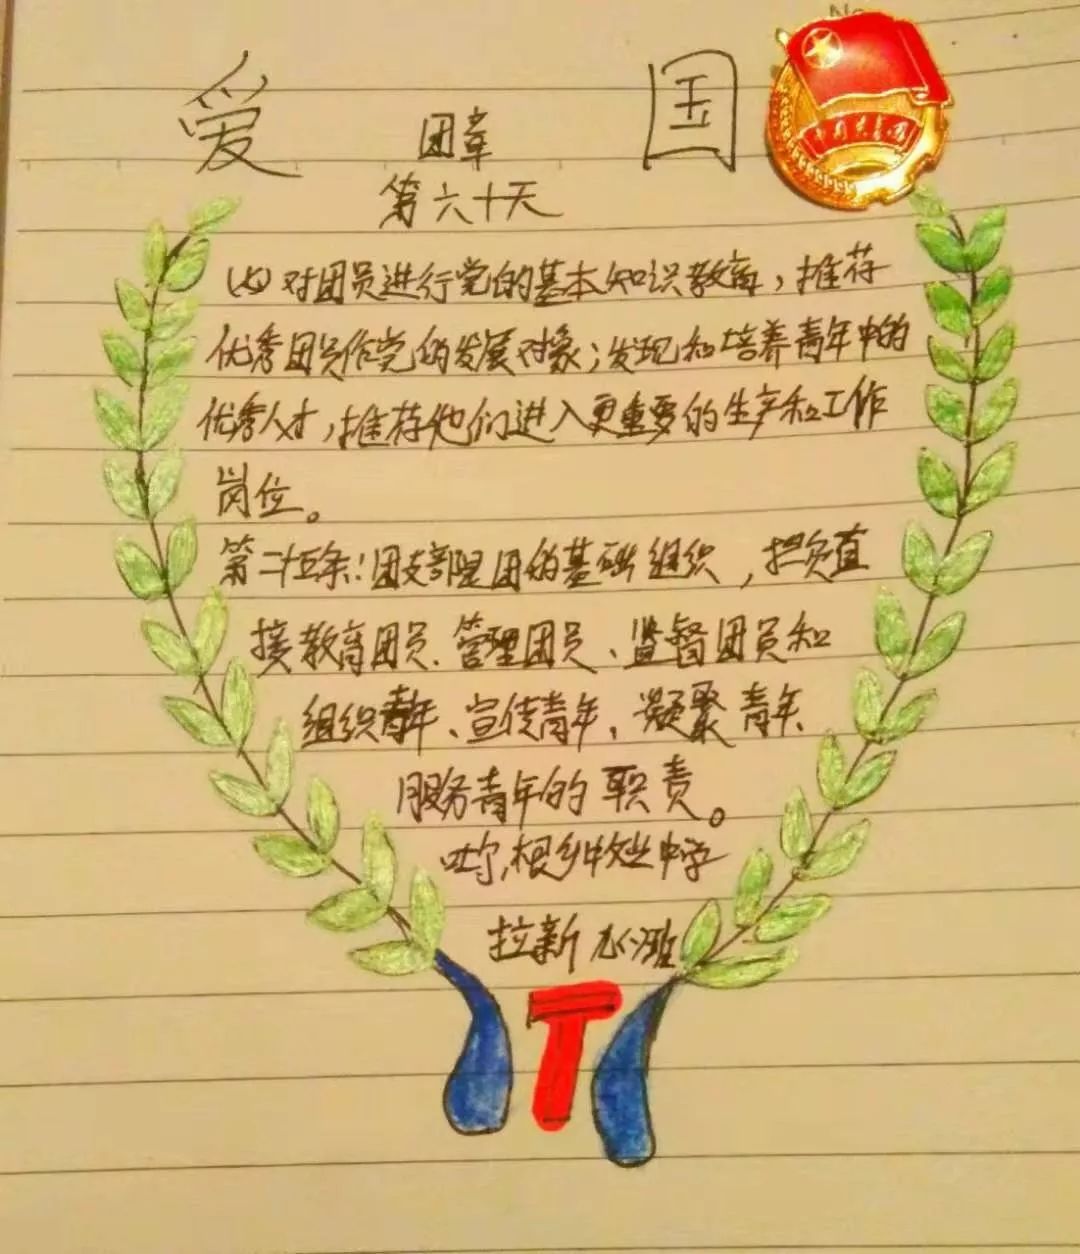 爱国
团章
第六十天
(四)对团员进行党的基本知识教育,推荐
优秀团员作党的发展对象;发现和培养青年中的
优秀人才,推荐他们进入更重要的生产和工作
岗位。
第二十五条:团支部是团的基础组织,担负直
接教育团员、管理团员、监督团员和
组织青年、宣传青年、凝聚青年、
服务青年的职责。
吐尔根乡中学
拉新
No